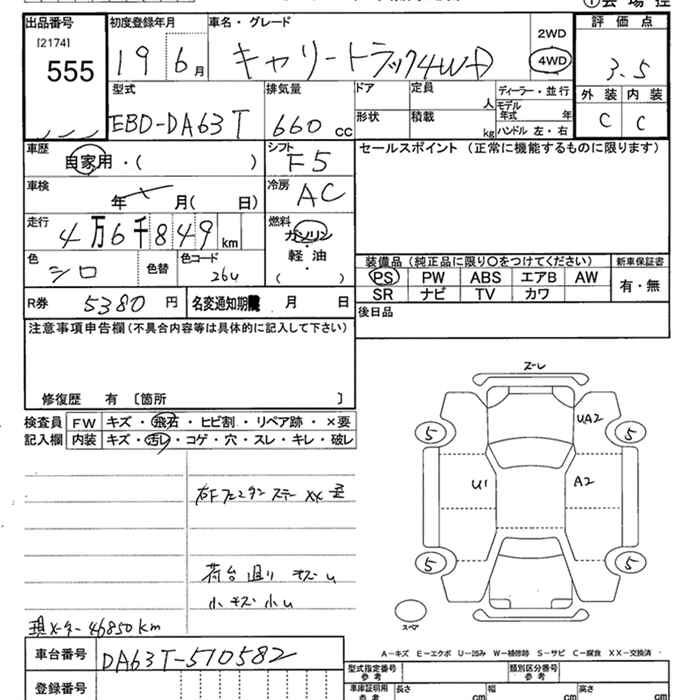 出品番号
[2174]
555
初度登録年月
19 6月
車名・グレード
キャリートラック4WD
2WD
4WD
評価点
3.5
外装 内装
C C
型式
EBD-DA63T
排気量
660 cc
ドア
形状
定員
人
積載
kg
ディーラー・並行
モデル年式 年
ハンドル 左・右
車歴
自家用・( )
シフト
F5
セールスポイント (正常に機能するものに限ります)
車検
年 月( 日)
冷房
AC
走行
4万6千849km
燃料
ガソリン
・
軽油
( )
色
シロ
色替
色コード
26U
装備品(純正品に限り○をつけてください)
新車保証書
PS PW ABS エアB AW
SR ナビ TV カワ
有・無
R券 5380円
名変通知期限 月 日
後日品
注意事項申告欄(不具合内容等は具体的に記入して下さい)
修復歴 有 [箇所 ]
検査員
記入欄
FW キズ・飛石・ヒビ割・リペア跡・×要
内装 キズ・汚レ・コゲ・穴・スレ・キレ・破レ
右Fフェンダーステー XX
荷台 キズ U
小キズ 小U
現メーター 46850km
車台番号 DA63T-510582
登録番号
スーレ
UA2
5 5
U1 A2
5 5
スペア
A-キズ E-エクボ U-凹み W-補修跡 S-サビ C-腐食 XX-交換済
型式指定番号
参考
類別区分番号
参考
車庫証明用
参考
長さ cm
幅 cm
高さ cm